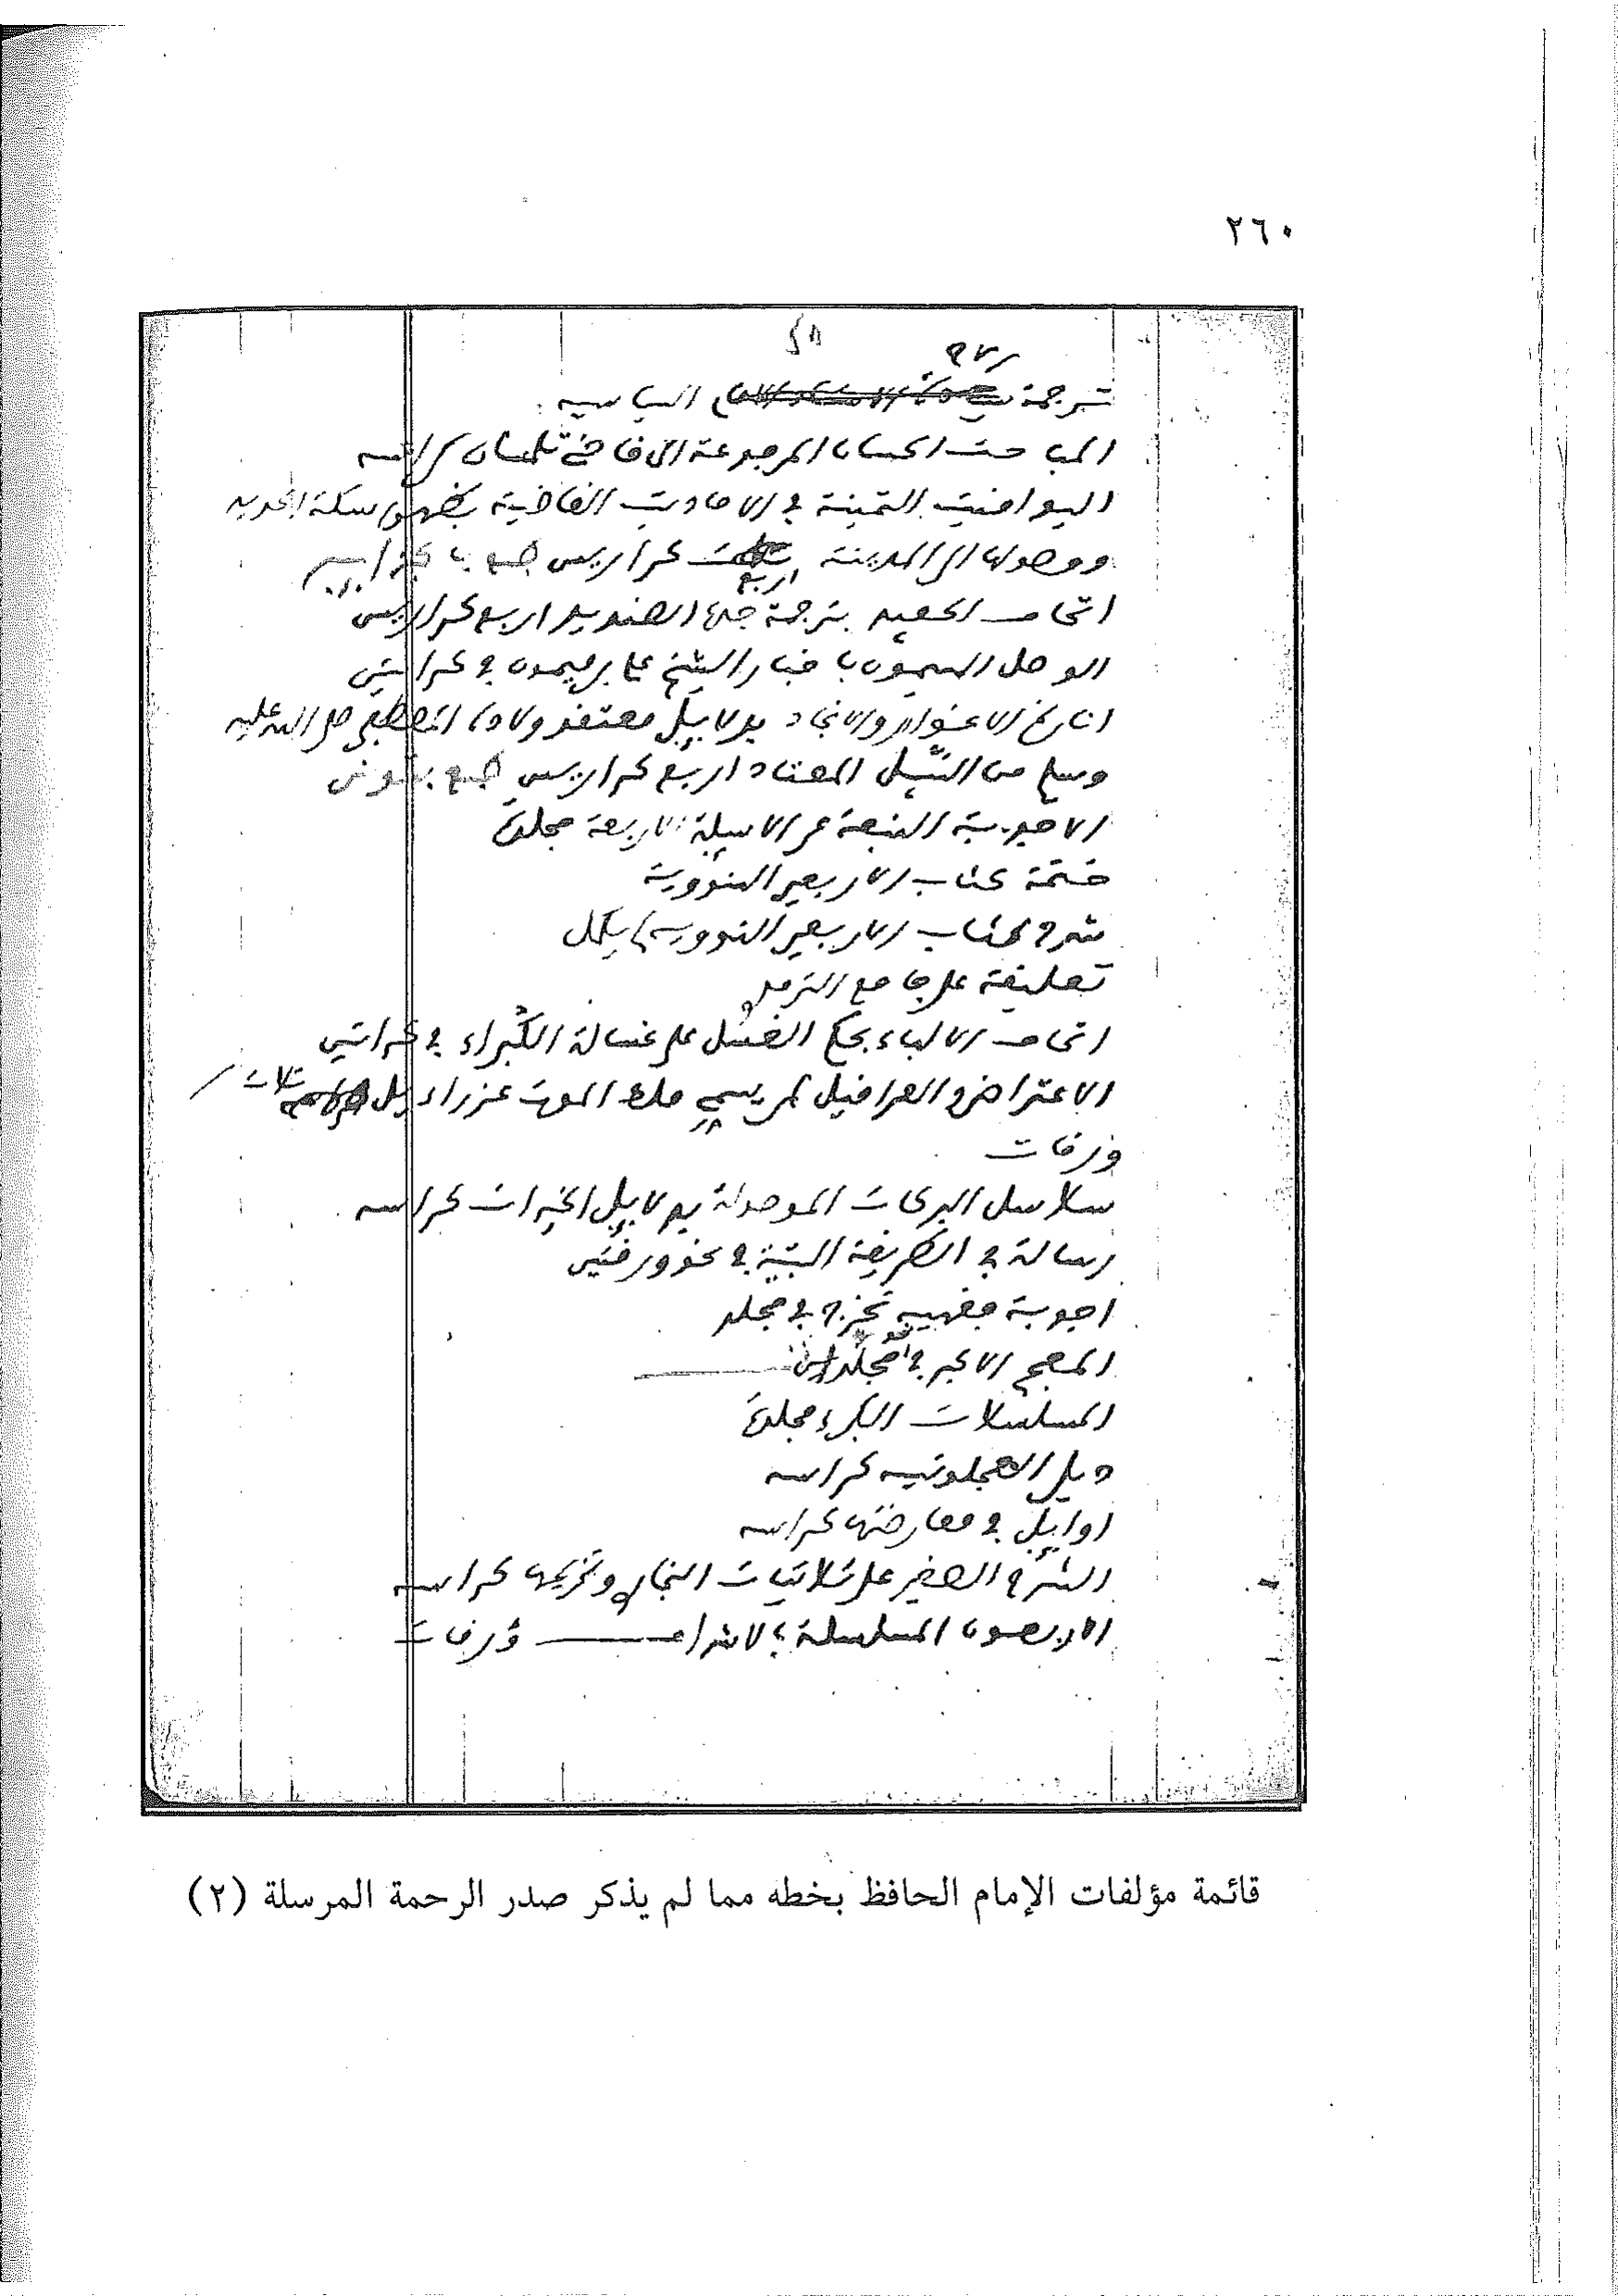 ٢٦٠
ترجمة
المباحث الحسان المرجوعة الى قاضي تلمسان كراسة
اليواقيت الثمينة في الاحاديث القاضية بظهور سكة الحديد
ووصولها الى المدينة اربع كراريس طبع
اتحاف الحفيد بترجمة جده الصنديد اربع كراريس
باخبار الشيخ في كراستين
الاغوار والانجاد بدلايل معتقد ولادة المصطفى صلى الله عليه
وسلم من السبيل المعتاد اربع كراريس طبع بتونس
الاجوبة النبعة عن الاسيلة الاربعة مجلدة
ختمة كتاب الاربعين النووية
شرح كتاب الاربعين النووية لم يكمل
تعليقة على جامع الترمذي
اتحاف الالباء بحكم على غسالة الكبراء في كراستين
الاعتراض والعراقيل لمن يسمي ملك الموت عزراءيل ثلاث
ورقات
سلاسل البركات الموصولة بدلايل الخيرات كراسة
رسالة في الطريقة في نحو ورقتين
اجوبة فقهية تخرج في مجلد
المعجم الاكبر في مجلد
المسلسلات الكبرى مجلدة
ذيل العجلونية كراسة
اوايل في معارضتها كراسة
الشرح الصغير على ثلاثيات البخاري وتخريجها كراسة
الاربعون المسلسلة بالاشراف ورقات
قائمة مؤلفات الإمام الحافظ بخطه مما لم يذكر صدر الرحمة المرسلة (٢)